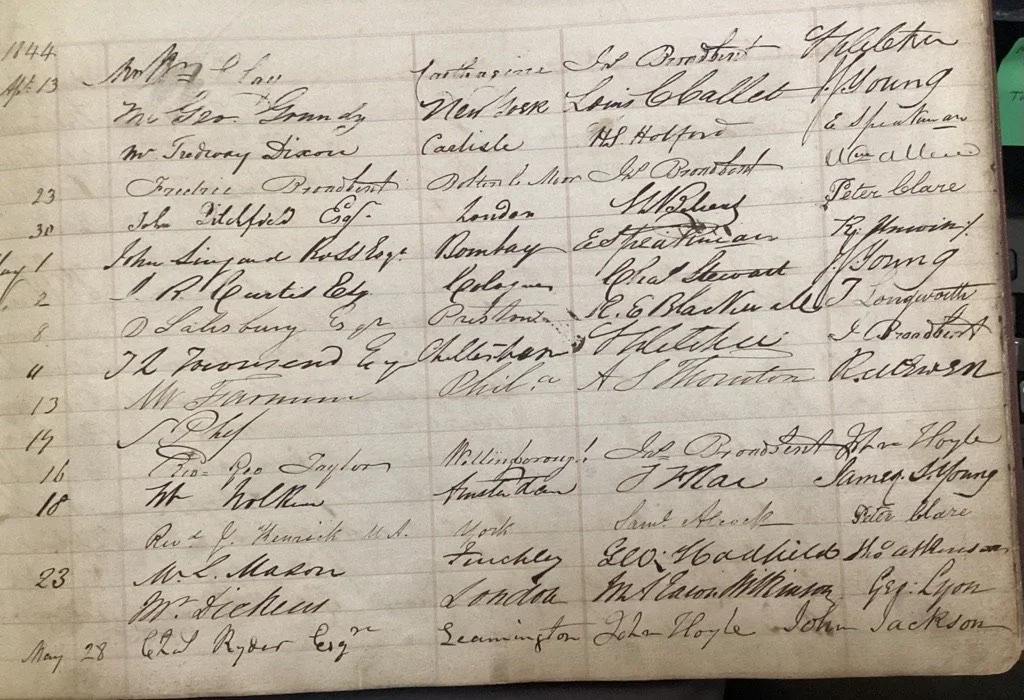 1844
Apl. 13 Law Carthagine Jno Broadbent S Fletcher
Mr Geo. Grundy New York Louis C Callet J. Young
Mr Tredway Dixon Carlisle H.S. Holford E Speakman
23 Fredric Broadbent Bolton le Moor Jno Broadbent Wm Allen
30 John Pitchfield Esqr. London Peter Clare
May 1 John Singard Ross Esqr Bombay E Speakman R. Unwin
2 J. R. Curtis Esq Cologne Chas Stewart J. Young
8 D Salisbury Esqr Preston R. E Blackwall T Longworth
" T L Townsend Esq Cheltenham S Fletcher J Broadbent
13 Mr Farnum Phil.a A S Thornton R. McEwen
14
16 Revd Geo Taylor Wellinborough Jno Broadbent John Hoyle
18 Mr Amsterdam T Mac James S. Young
Revd J. Kenrick M.A. York Saml Alcock Peter Clare
23 Mr L. Mason Finchley Geo. Hadfield Tho Atkinson
Mr Dickens London M A Eason Wilkinson Geo. Lyon
May 28 C & S Ryder Esqre Leamington John Hoyle John Jackson